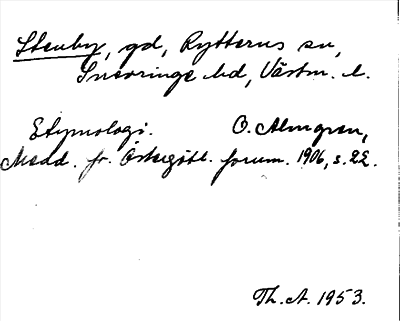 Stenby, gd, Rytterns sn,
Snevringe hd, Västm. l.
Etymologi. O. Almgren,
Medd. fr. Östergötl. fornm. 1906, s. 22.
Th. A. 1953.